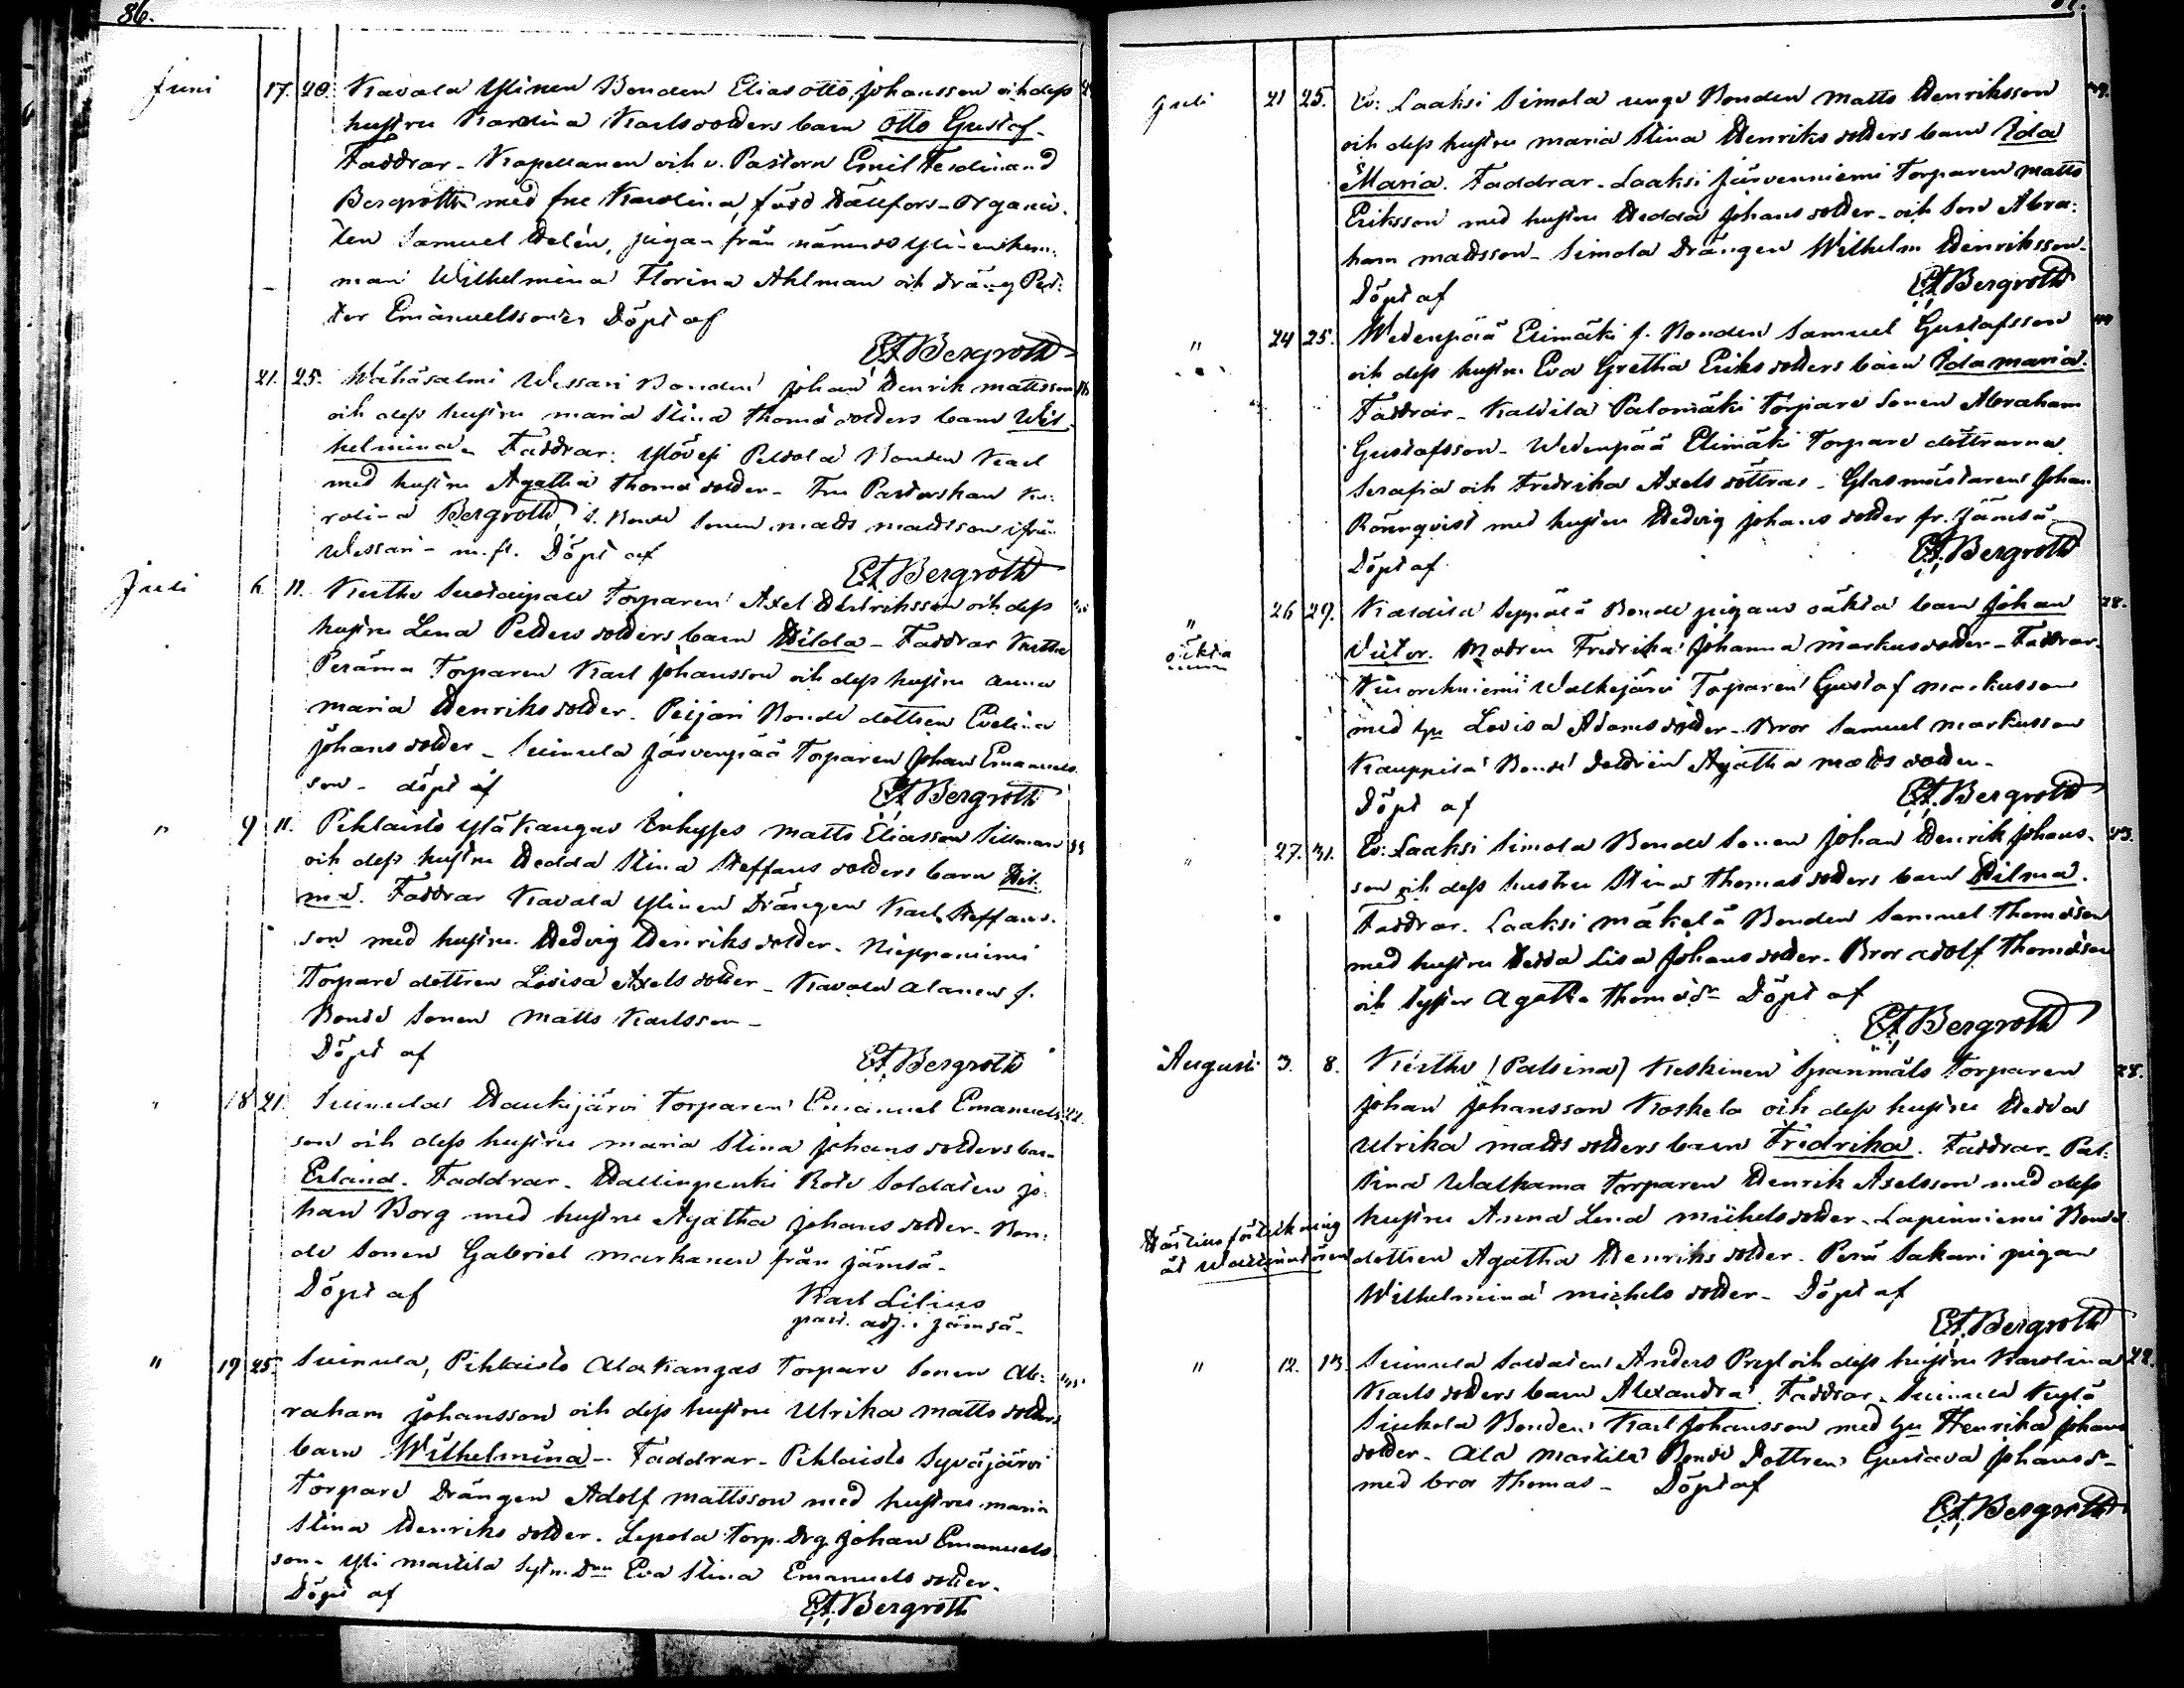 86.
Juni 17. 20. Kavala Ylinen Bonden Elias Otto Johansson och dess
hustru Karolina Karlsdotters barn Otto Gustaf.
Faddrar - Kapellanen och v. Pastorn Emil Ferdinand
Bergroth med fru Karolina, född Hällfors - Organis-
ten Samuel Helén, pigan från nämnde Ylinen hem-
man Wilhelmina Florina Ahlman och dräng Pet-
ter Emanuelsson. Döpt af
EF Bergroth
21. 25. Wähäsalmi Wessari Bonden Johan Henrik Mattsson
och dess hustru Maria Stina Thomædotters barn Wil-
helmina. Faddrar: Ylöjes Peltola Bonden Karl
med hustru Agatha Thomædotter - Fru Pastorskan Ka-
rolina Bergroth, f. Bonde Sonen Matts Mattsson ifrån
Wessari - m. fl. Döpt af
EF Bergroth
Juli 6. 11. Kerthe Torparen Axel Henriksson och dess
hustru Lena Petters dotters barn Hilda - Faddrar Kerthe
Perämä Torparen Karl Johansson och dess hustru Anna
Maria Henriksdotter. Peijari Bonde dottren Evelina
Johansdotter - Suinula Järvenpää Torparen Johan Emanuels-
son - döpt af
EF Bergroth
" 9 11. Pihlaisto Yläkangas Inhyses Matts Eliasson Sillman
och dess hustru Hedda Stina Steffans dotters barn Hil-
ma. Faddrar Kavala Ylinen Drängen Karl Steffans-
son med hustru Hedvig Henriksdotter. Nieppaniemi
Torpare dottren Lovisa Axelsdotter - Kavala Alanen f.
Bonde Sonen Matts Karlsson -
Döpt af
EF Bergroth
" 18 21. Suinula Haukijärvi Torparen Emanuel Emanuels- 22.
son och dess hustru Maria Stina Johans dotters barn
Erland. Faddrar - Hallinpenki Rote Soldaten Jo-
han Borg med hustru Agatha Johansdotter - Bon-
de Sonen Gabriel Markanen från Jämsä -
Döpt af
Karl Lilius
past. adj. i Jämsä -
" 19 25. Suinula, Pihlaisto Alakangas Torpare Sonen Ab-
raham Johansson och dess hustru Ulrika Matts dotters
barn Wilhelmina - Faddrar - Pihlaisto Syväjärvi
Torpare Drängen Adolf Mattsson med hustru Maria
Stina Henriksdotter. Lepola Torp. Drg Johan Emanuels-
son - Yli Martila Eva Stina Emanuelsdotter.
Döpt af
EF Bergroth
Juli 21 25. Ev: Laaksi Simola unge Bonden Matts Henriksson
och dess hustru Maria Stina Henriks dotters barn Ida
Maria. Faddrar - Laaksi Järvenniemi Torparen Matts
Eriksson med hustru Hedda Johansdotter - och Son Abra-
ham Mattsson - Simola Drängen Wilhelm Henriksson.
Döpt af
EF Bergroth
" 24 25. Wedenpää Elimäki f. Bonden Samuel Gustafsson
och dess hustru Eva Gretha Eriks dotters barn Ida Maria.
Faddrar - Kaldila Palomäki Torpare Sonen Abraham
Gustafsson - Wedenpää Elimäki Torpare döttrarna
Serafia och Fredrika Axels döttrar - Glasmästaren Johan
Rönnqvist med hustru Hedvig Johansdotter fr. Jämsä
Döpt af
EF Bergroth
" 26 29. Kaldila Seppälä Bonde pigans oäkta barn Johan 28.
oäkta
Victor. Modren Fredrika Johanna Markusdotter - Faddrar
Walkejärvi Torparen Gustaf Markusson
med hu Lovisa Adamsdotter - Bror Samuel Markusson
Kauppila Bonde dottren Agatha Matts dotter -
Döpt af
EF Bergroth
" 27. 31. Ev: Laaksi Simola Bonde Sonen Johan Henrik Johans- 23.
son och dess hustru Stina Thomas dotters barn Hilma.
Faddrar. Laaksi Mäkelä Bonden Samuel Thomasson
med hustru Hedda Lisa Johansdotter. Bror Adolf Thomasson
och Syster Agatha Thomædr Döpt af
EF Bergroth
Augusti 3. 8. Kerthe (Palsina) Keskinen Spanmåls Torparen 28.
Johan Johansson Koskela och dess hustru Hedda
Ulrika Matts dotters barn Fredrika. Faddrar - Pal-
sina Walkama Torparen Henrik Axelsson med dess
hustru Anna Lena Michelsdotter. Lapinniemi Bonde
dottren Agatha Henriksdotter. Perä Sakari pigan
Wilhelmina Michels dotter - Döpt af
EF Bergroth
" 12. 13. Suinula Soldaten Anders Pryl och dess hustru Karolina 22.
Karls dotters barn Alexandra. Faddrar - Suinula Kylä
Siukola Bonden Karl Johansson med hu Henrika Johans
dotter - Ala Martila Bonde Dottren Gustava Johansdr
med bror Thomas - Döpt af
EF Bergroth